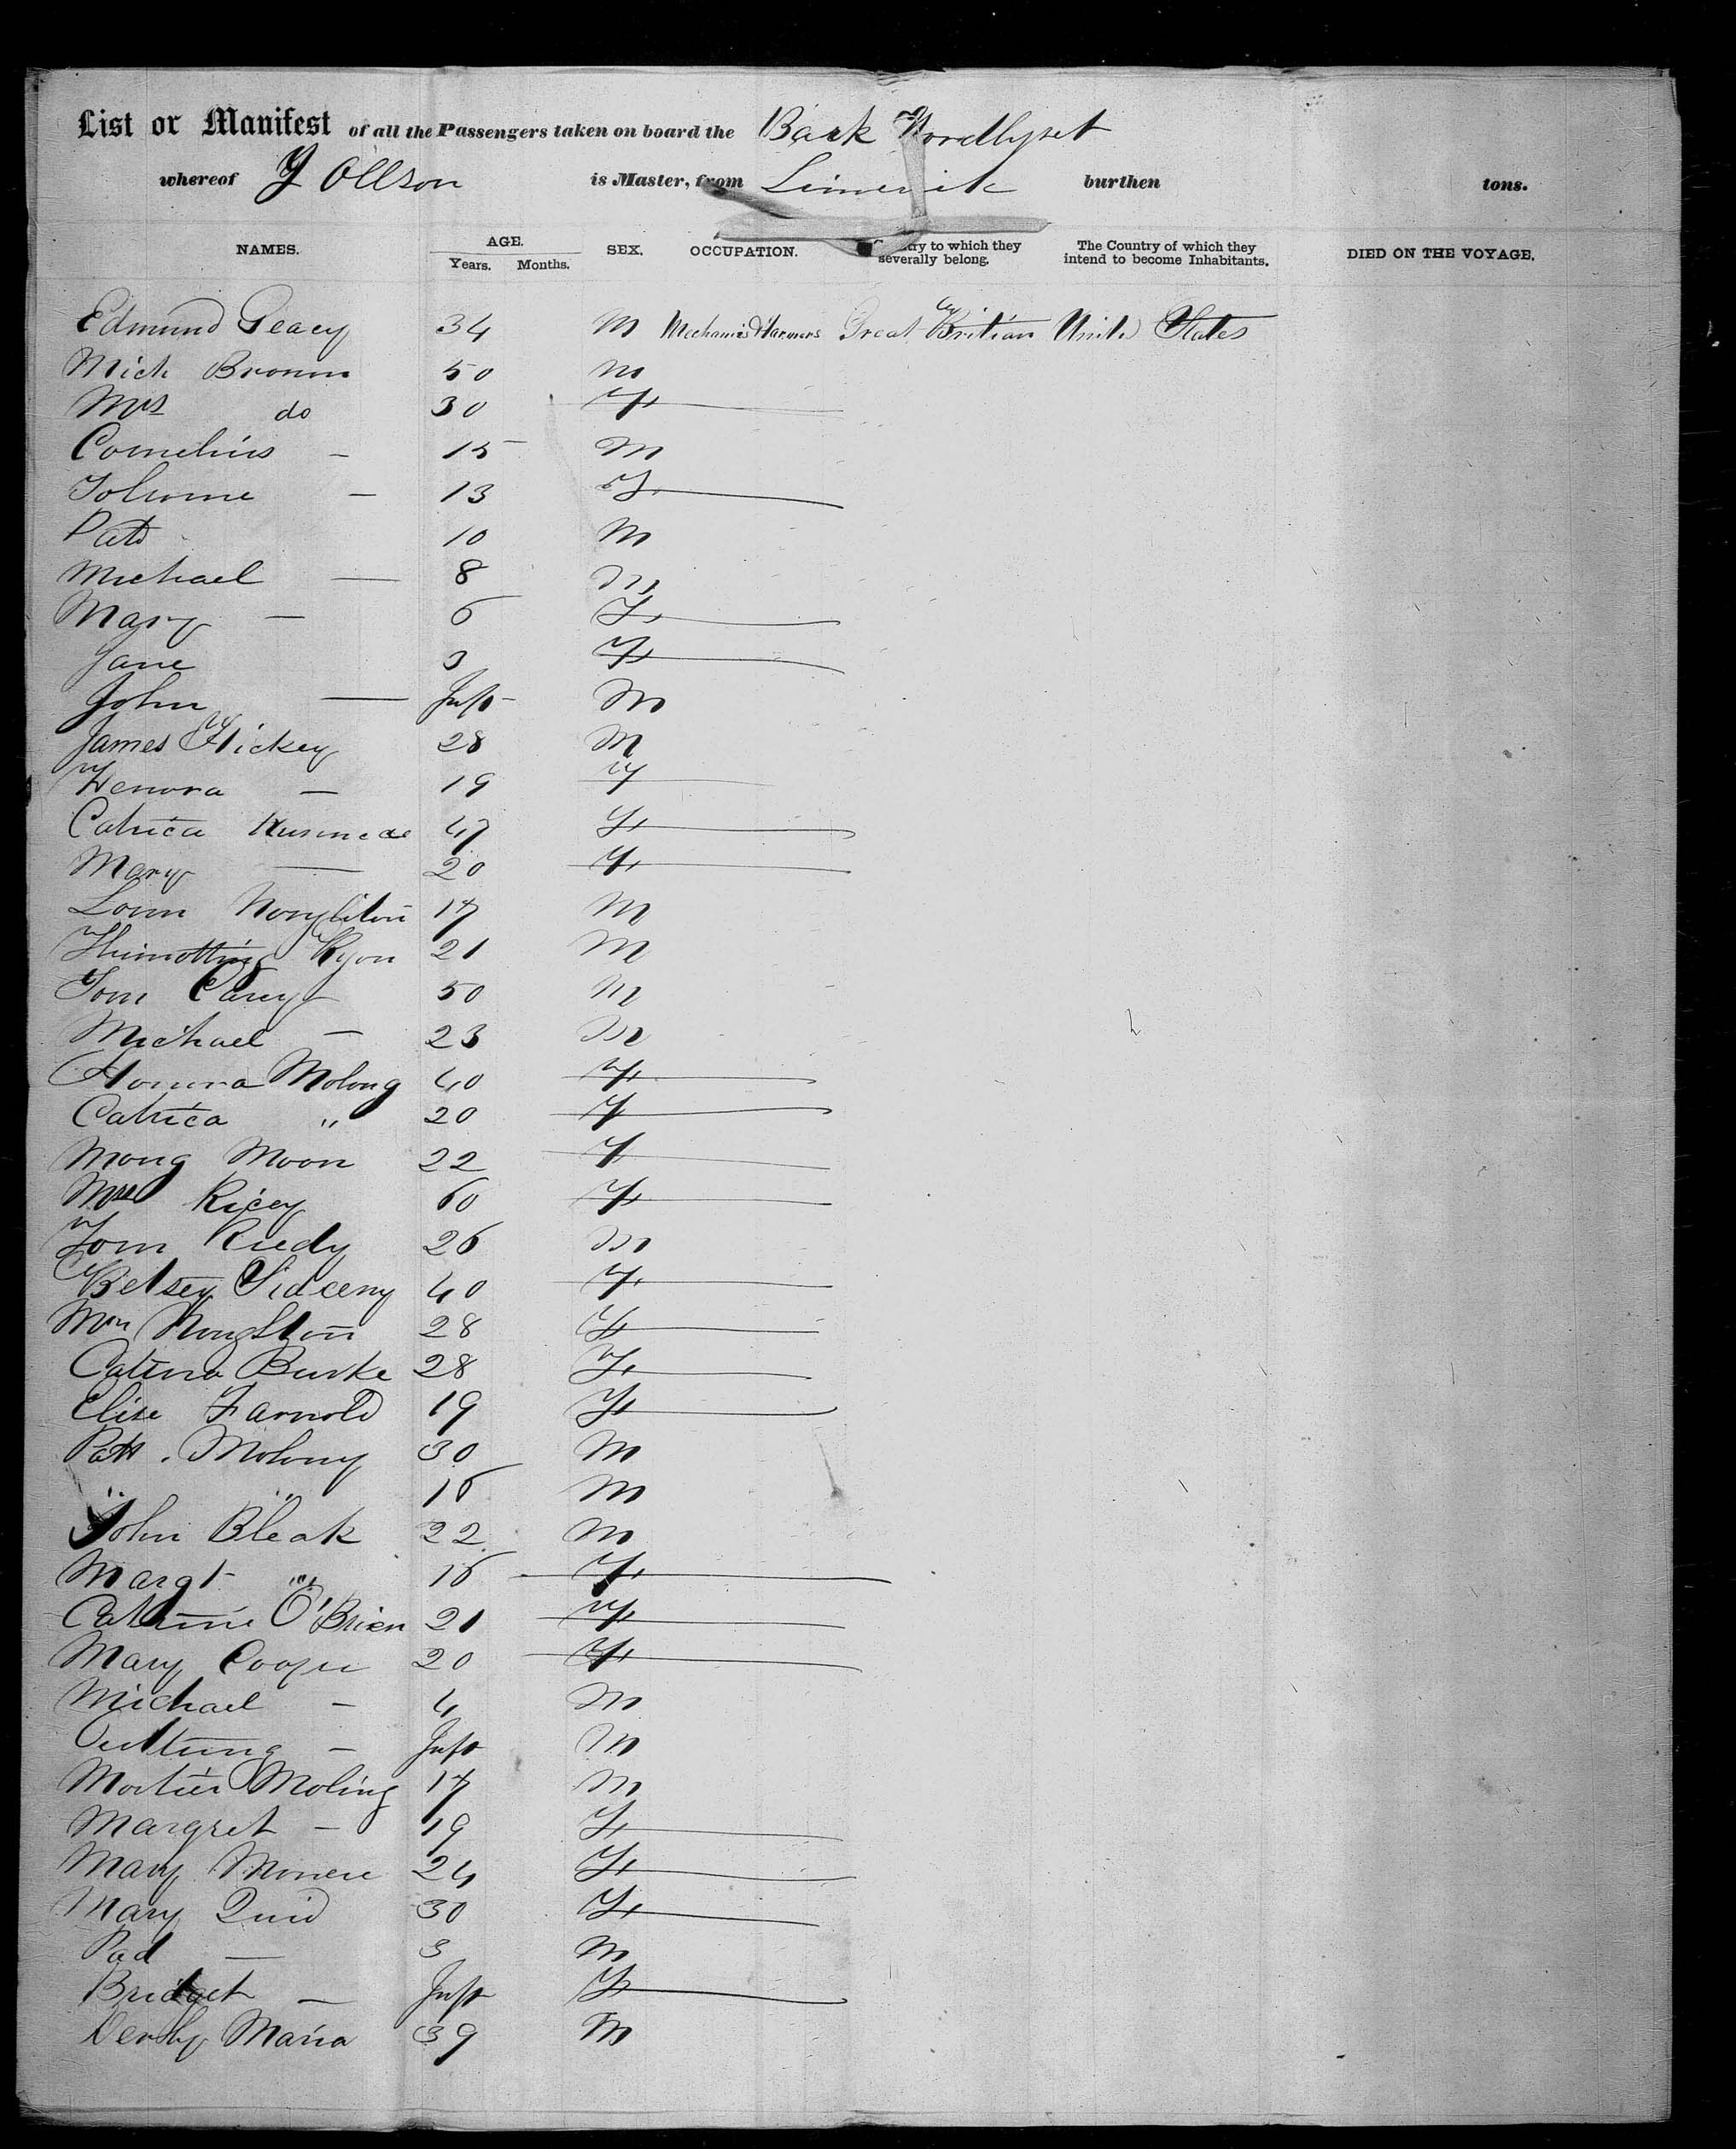 List or Manifest of all the Passengers taken on board the Bark Nordlyset
whereof J Ollson is Master, from Limerick burthen tons.
NAMES. AGE. Years. Months. SEX. OCCUPATION. try to which they severally belong. The Country of which they intend to become Inhabitants. DIED ON THE VOYAGE.
Edmund Geacy 34 M Mechanics & Farmers Great Britian Unite States
Mich Brown 50 M
Mrs do 30 F
Cornelius — 15 M
13 F
Pat 10 M
Michael — 8 M
Mary — 6 F
Jane 3 F
John — Inft M
James Hickey 28 M
Henora — 19 F
Catrica 47 F
Mary — 20 F
17 M
Ryon 21 M
Tom Carey 50 M
Michael — 23 M
Honora Molony 40 F
Catrica " 20 F
Mong Moon 22 F
Mrs Ricey 60 F
Tom Riedy 26 M
Betsey 40 F
28 F
Burke 28 F
Elise Farnold 19 F
Patt. Molony 30 M
" " 16 M
John Bleak 22 M
Margt " 16 F
Cathrine O'Brien 21 F
Mary Cooper 20 F
Michael — 4 M
— Inft M
Moling 17 M
Margret — 19 F
Mary 24 F
Mary Quid 30 F
Pad — 3 M
Bridget — Inft F
Maria 39 M